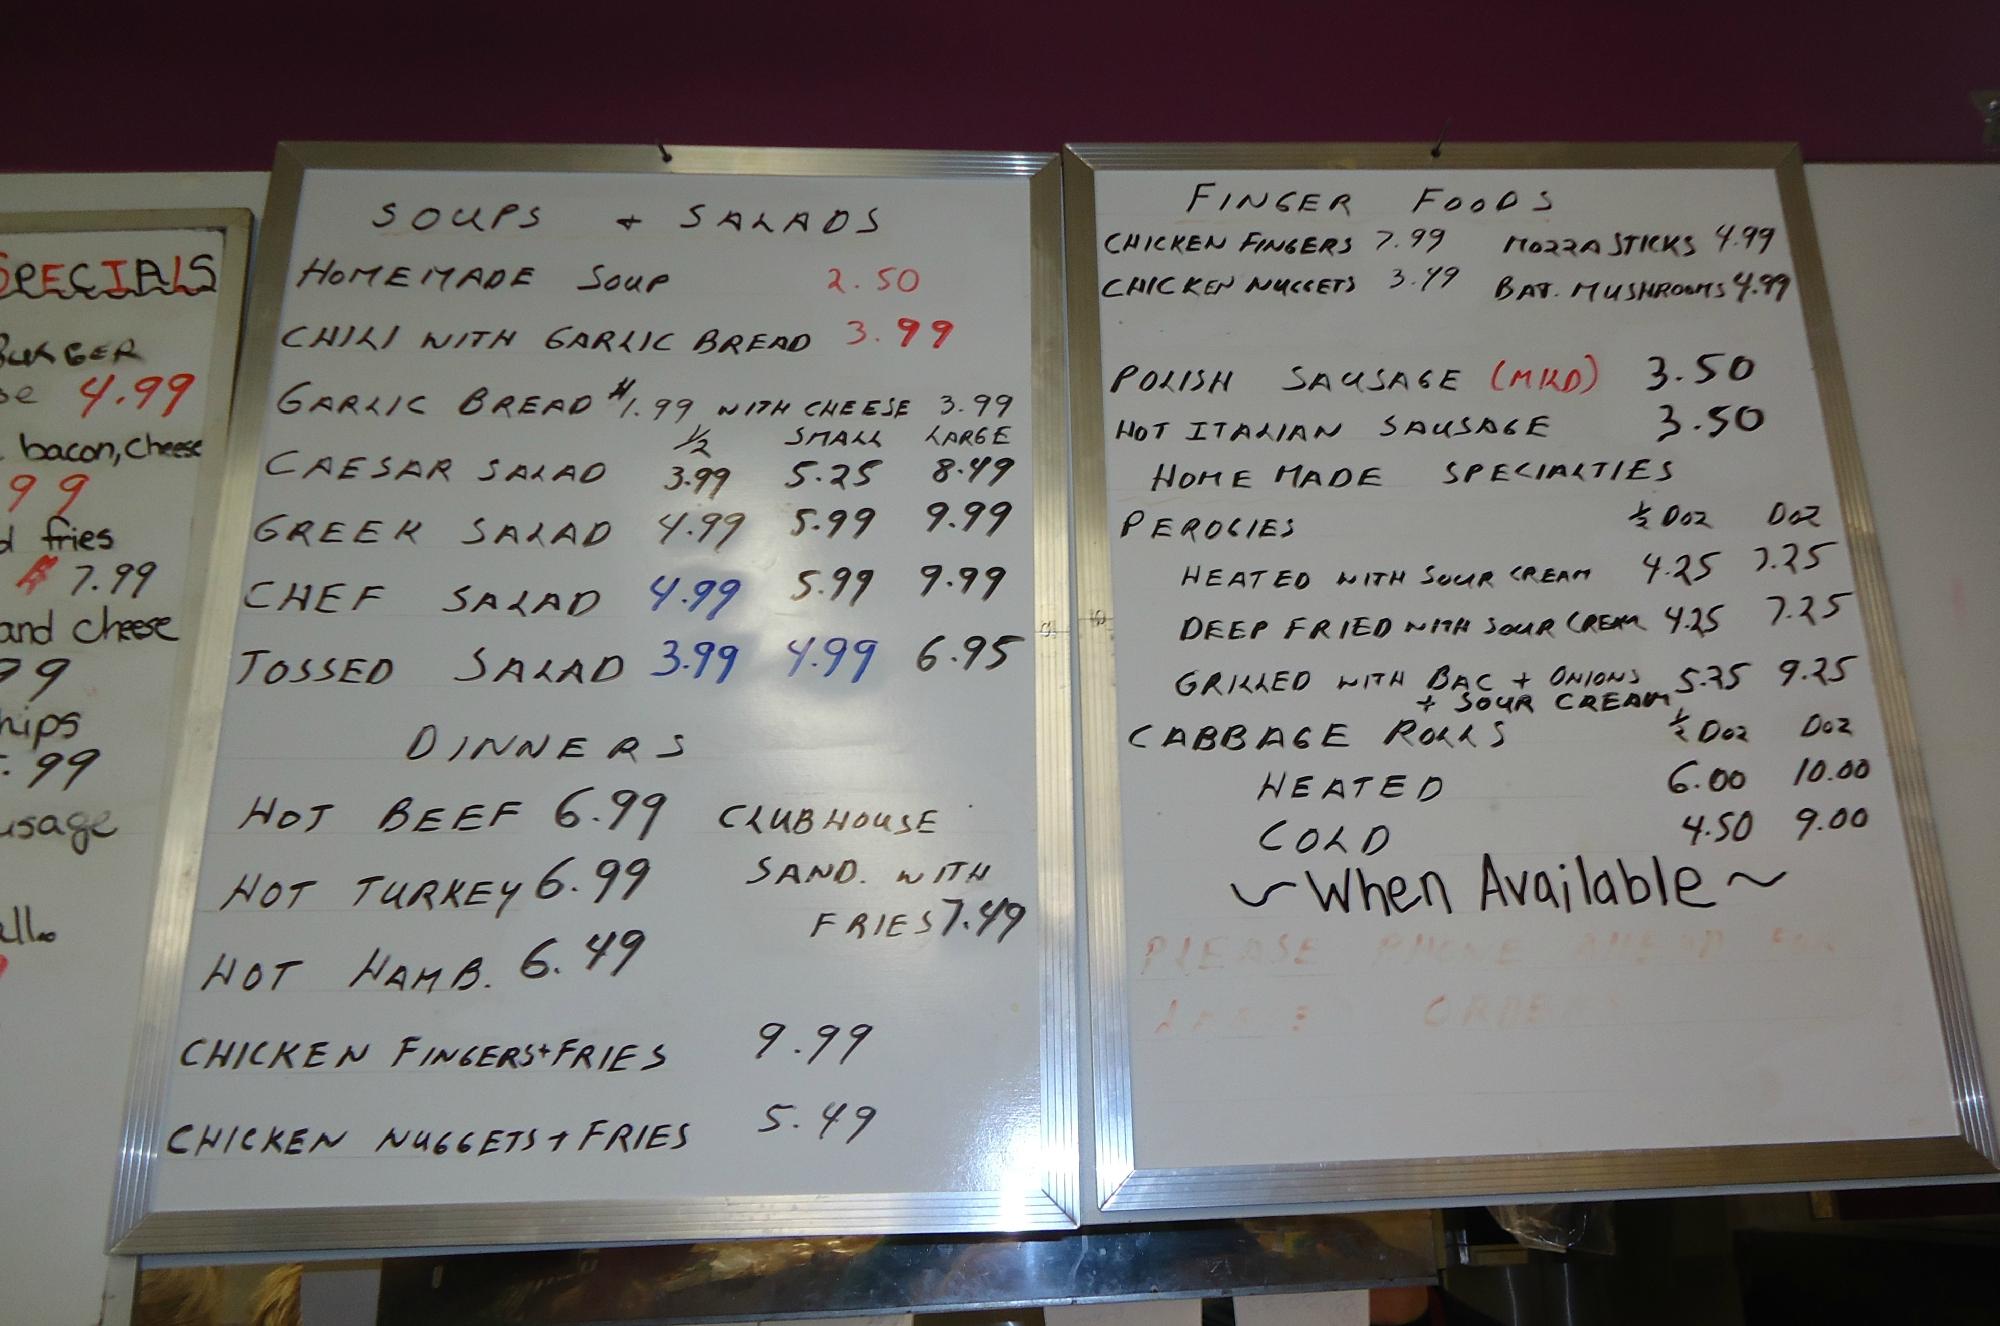 SPECIALS
BURGER
4.99
bacon, cheese
99
fries
$ 7.99
and cheese
99
.99
SOUPS + SALADS
HOMEMADE SOUP 2.50
CHILI WITH GARLIC BREAD 3.99
GARLIC BREAD $1.99 WITH CHEESE 3.99
1/2 SMALL LARGE
CAESAR SALAD 3.99 5.25 8.49
GREEK SALAD 4.99 5.99 9.99
CHEF SALAD 4.99 5.99 9.99
TOSSED SALAD 3.99 4.99 6.95
DINNERS
HOT BEEF 6.99
HOT TURKEY 6.99
HOT HAMB. 6.49
CLUBHOUSE
SAND. WITH
FRIES 7.49
CHICKEN FINGERS + FRIES 9.99
CHICKEN NUGGETS + FRIES 5.49
FINGER FOODS
CHICKEN FINGERS 7.99 MOZZA STICKS 4.99
CHICKEN NUGGETS 3.49 BAT. MUSHROOMS 4.99
POLISH SAUSAGE (MILD) 3.50
HOT ITALIAN SAUSAGE 3.50
HOME MADE SPECIALTIES
PEROGIES 1/2 DOZ DOZ
HEATED WITH SOUR CREAM 4.25 7.25
DEEP FRIED WITH SOUR CREAM 4.25 7.25
GRILLED WITH BAC + ONIONS 5.25 9.25
+ SOUR CREAM
CABBAGE ROLLS 1/2 DOZ DOZ
HEATED 6.00 10.00
COLD 4.50 9.00
~ When Available ~
PLEASE PHONE AHEAD FOR
LARGE ORDERS